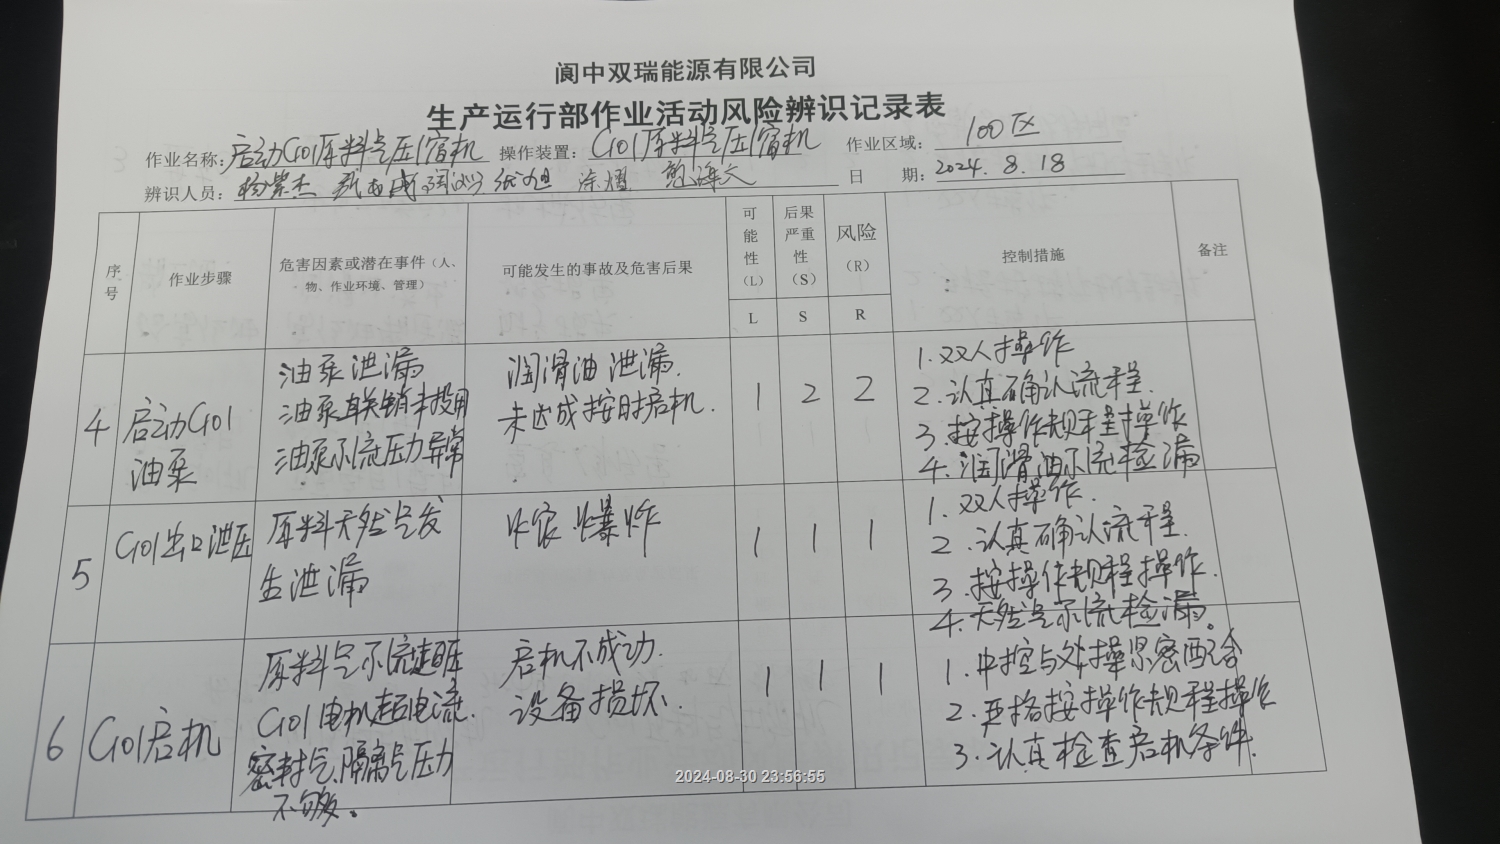 阆中双瑞能源有限公司
生产运行部作业活动风险辨识记录表
作业名称:启动G01原料气压缩机 操作装置:G01原料气压缩机 作业区域:100区
辨识人员: 日期:2024.8.18
序号 作业步骤 危害因素或潜在事件(人、物、作业环境、管理) 可能发生的事故及危害后果 可能性(L) 后果严重性(S) 风险(R) 控制措施 备注
L S R
4
启动G01
油泵
油泵泄漏
油泵联销未投用
油泵示流压力异常
润滑油泄漏.
未达成按时启机.
1 2 2
1.双人操作
2.认真确认流程.
3.按操作规程操作
4.润滑油示流检漏
5
G01出口泄压
原料天然气发
生泄漏
爆炸
1 1 1
1.双人操作.
2.认真确认流程.
3.按操作规程操作.
4.天然气示流检漏。
6
G01启机
原料气示流超压
G01电机超电流.
密封气,隔离气压力
不够。
启机不成功.
设备损坏.
1 1 1
1.中控与外操紧密配合
2.严格按操作规程操作
3.认真检查启机条件.
2024-08-30 23:56:55